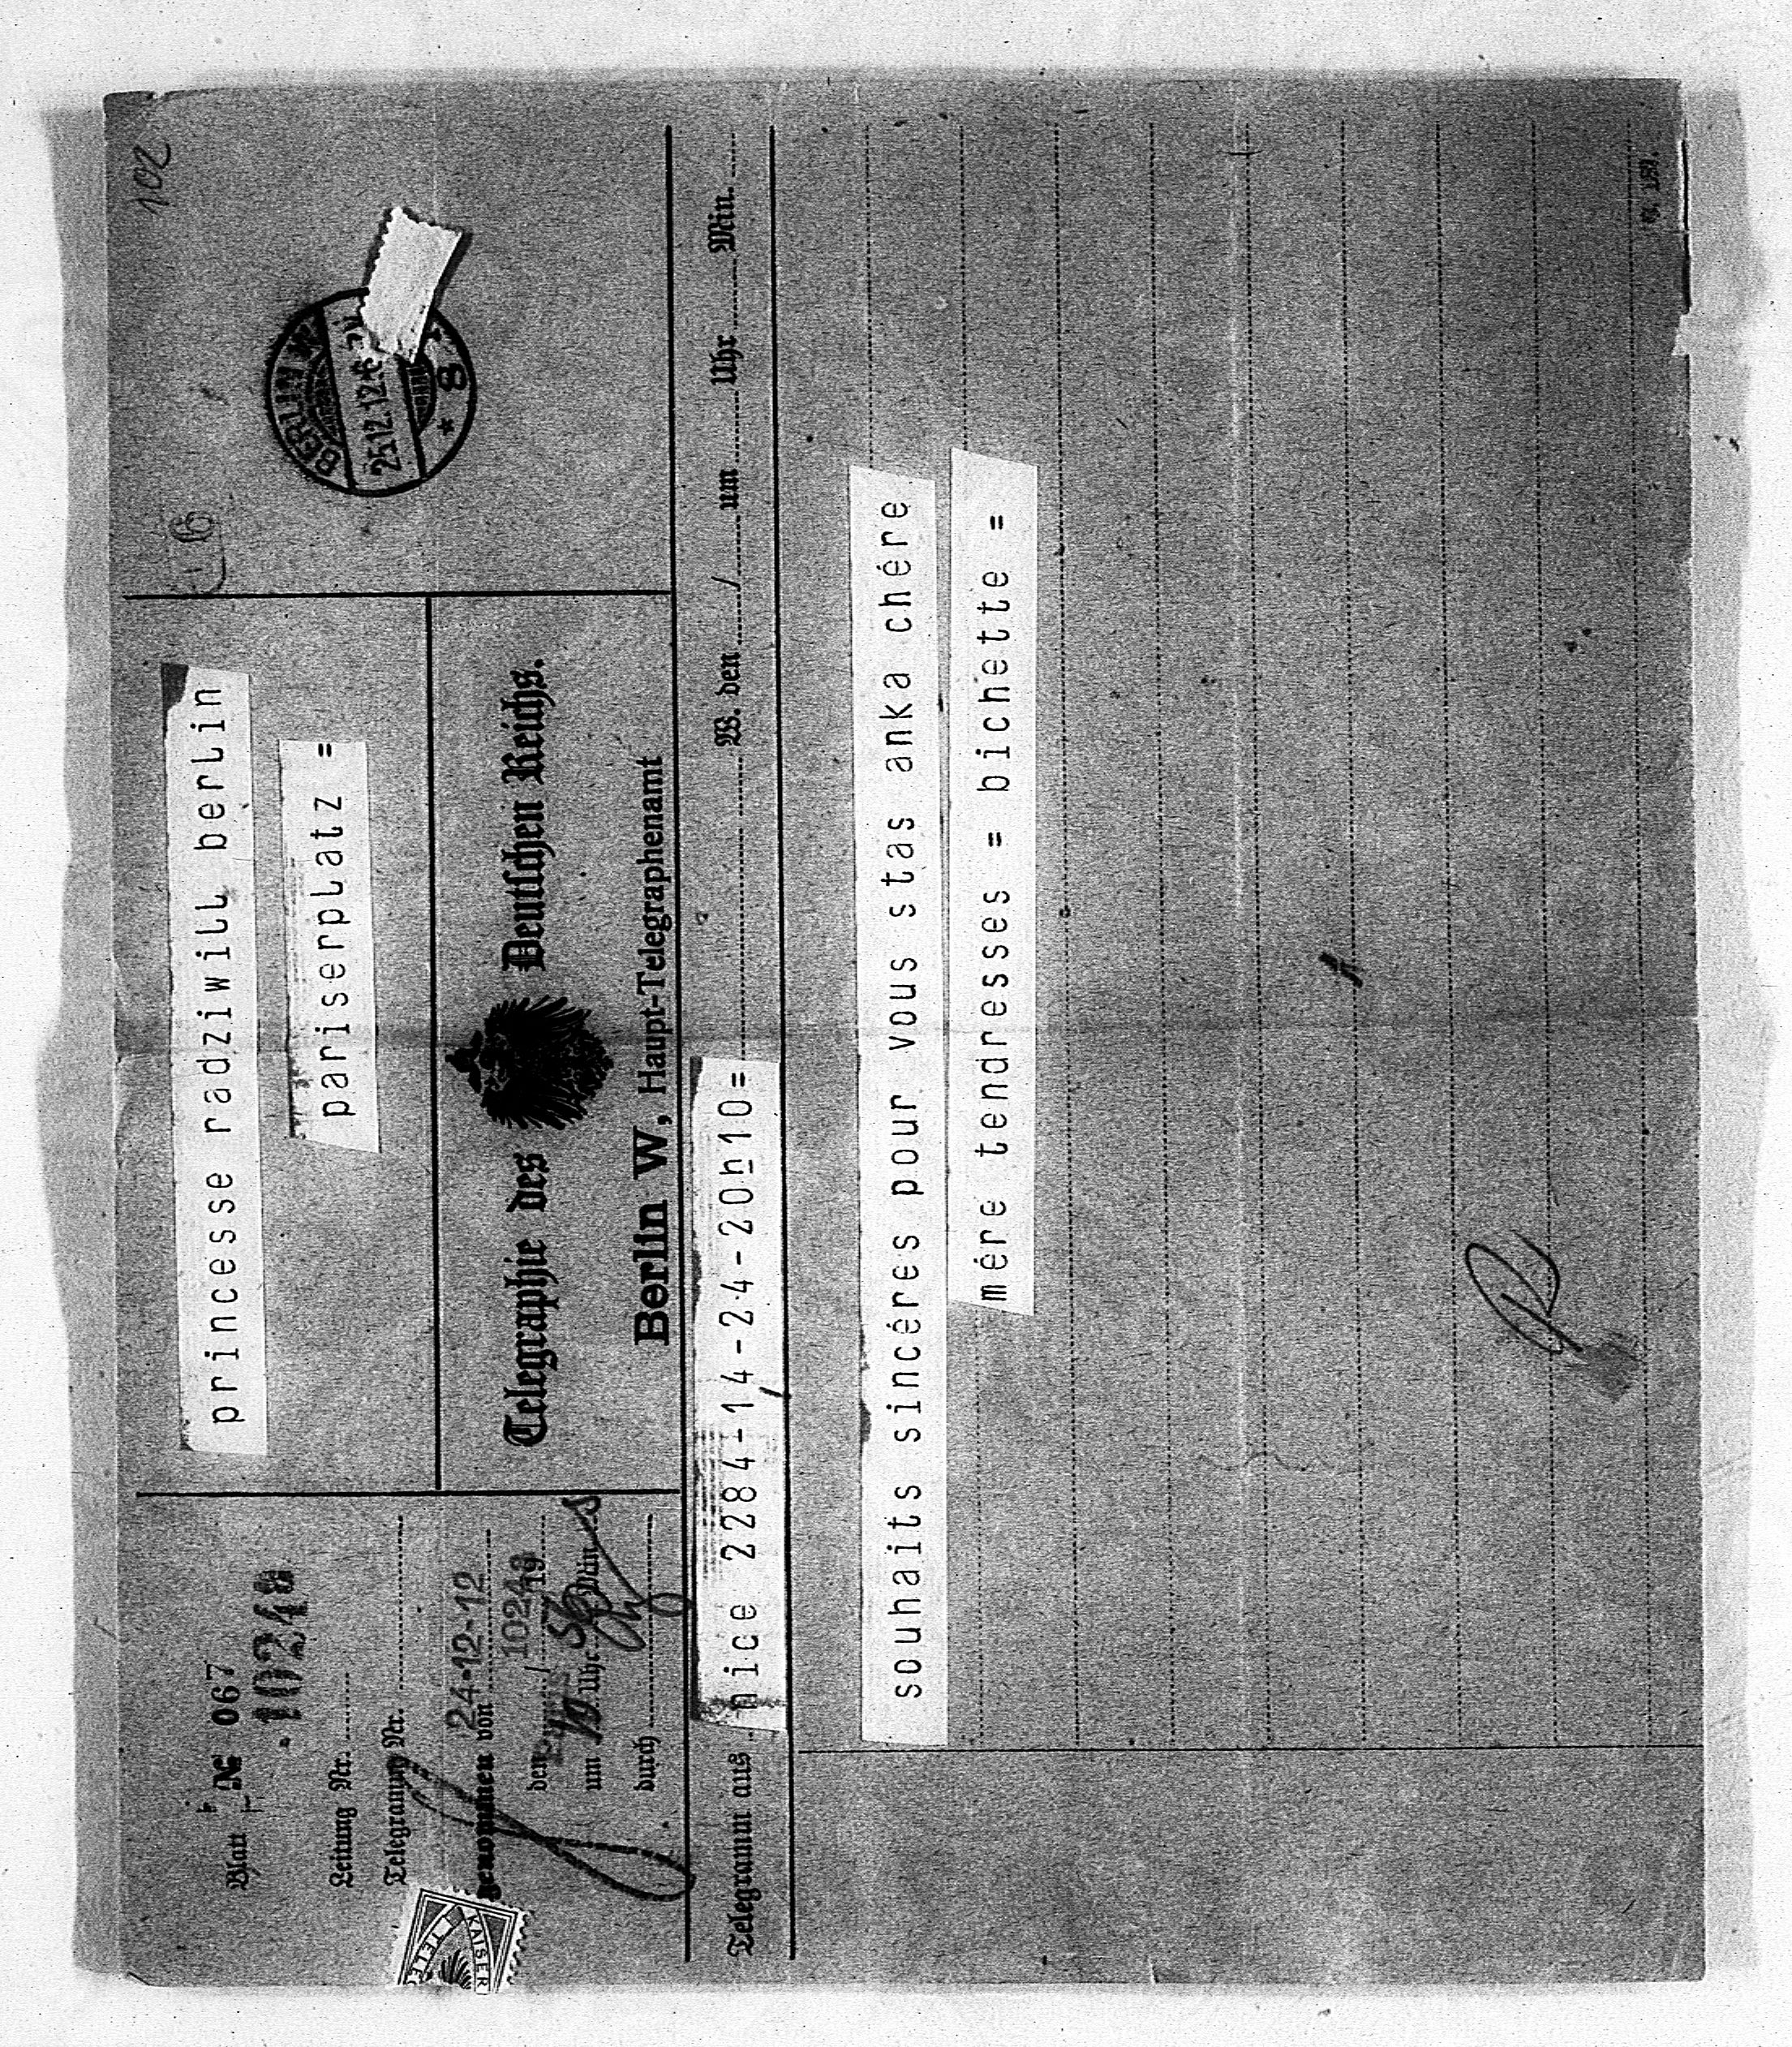 102
16
princesse radziwill berlin
pariserplatz =
Blatt № 067
10248
Leitung Nr.
Telegramm Nr.
genommen von 24-12-12
den / 10248 19
um 10 Uhr Min
durch
Telegraphie des Deutschen Reichs.
Berlin W, Haupt-Telegraphenamt
BERLIN W
25.12.12.6
* 8
KAISER
TELE
Telegramm aus nice 2284-14-24-20h10= W. den / um Uhr Min.
souhaits sincéres pour vous stas anka chére
mére tendresses = bichette =